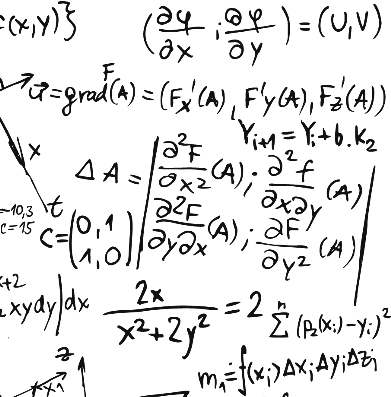 c(x,y)}
(∂φ/∂x ; ∂φ/∂y) = (U,V)
u⃗ = grad F(A) = (Fx'(A), F'y(A), Fz'(A))
Yi+1 = Yi + b · k2
x
ΔA = | ∂²F/∂x² (A) ; ∂²f/∂x∂y (A)
∂2F/∂y∂x (A) ; ∂F/∂y² (A) |
t
-10,3
c=15
C = (0,1
1,0)
x+2
xydy | dx
2x / x²+2y² = 2
n Σ (p2(xi) - yi)²
z
m1 = f(xi) Δxi Δyi Δzi